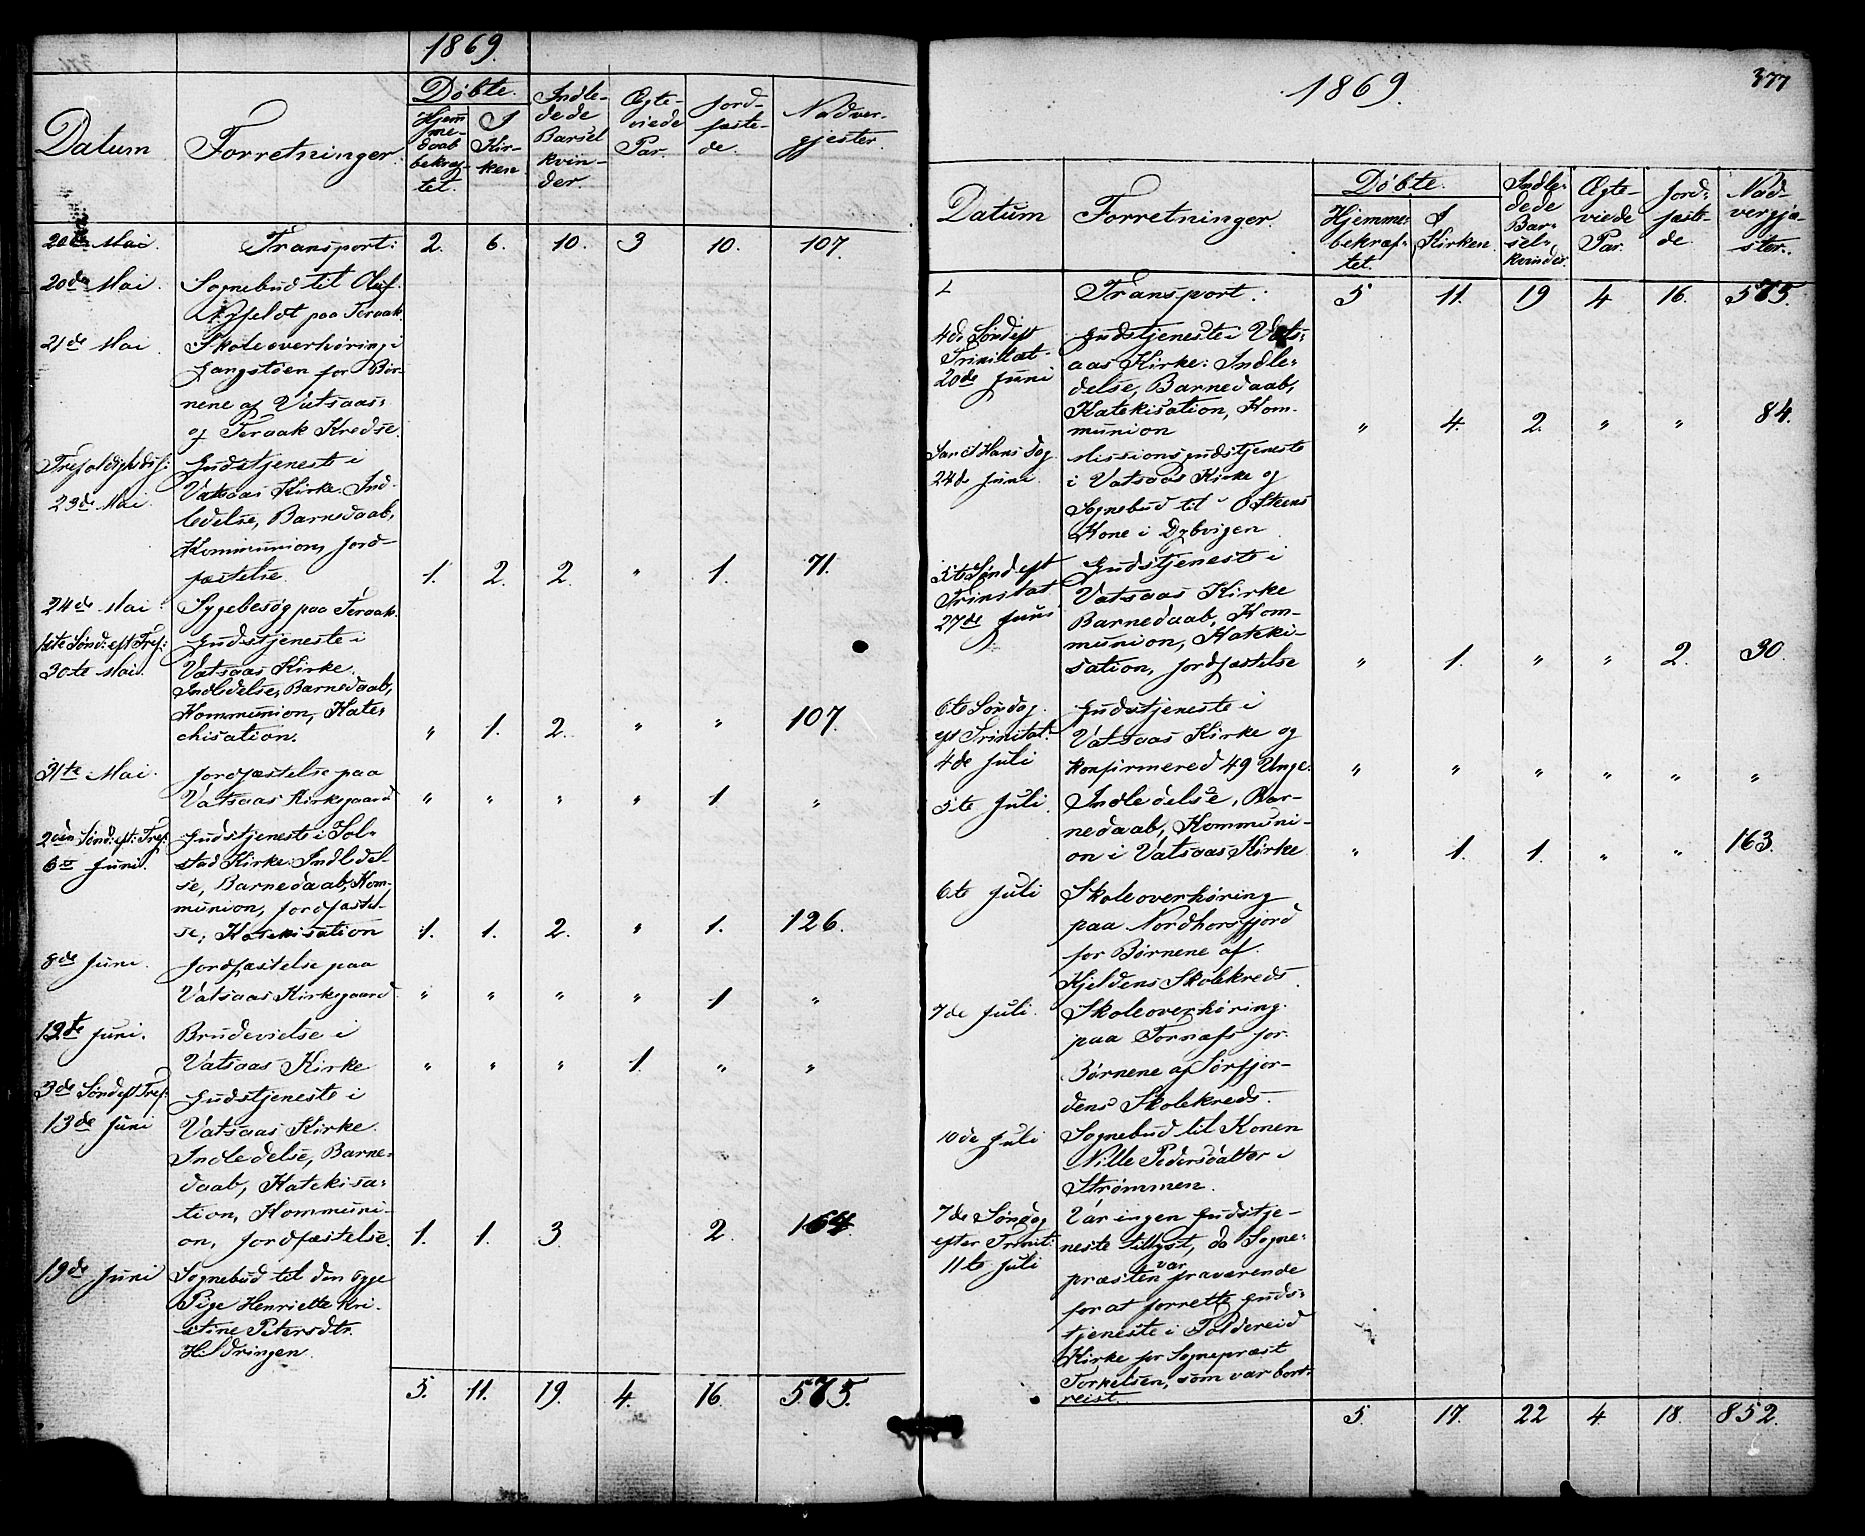 1869.
Datum
Forretninger.
Døbte.
Hjem
me-
daab
bekræf-
tet.
I
Kir-
ken
Indle-
dede
Barsel
kvin-
der.
Ægte-
viede
Par.
Jord-
fæste-
de.
Nadver-
gjester.
20de Mai. Transport: 2. 6. 10. 3 10. 107.
20de Mai. Sognebud til Oluf
paa Teraak.
21de Mai. Skoleoverhøring i
Gangstøen for Bør-
nene af Vatsaas:
og Teraak Kredse.
Trefoldighedsf: Gudstjeneste i
23de Mai. Vatsaas Kirke. Ind-
ledelse, Barnedaab,
Kommunion, Jord-
fæstelse. 1. 2. 2. " 1. 71.
24de Mai. Sygebesøg paa Teraak.
1ste Sønd: eft Tref: Gudstjeneste i
30te Mai. Vatsaas Kirke.
Indledelse, Barnedaab,
Kommunion, Kate-
chisation. " 1. 2. " " 107.
31te Mai. Jordfæstelse paa
Vatsaas Kirkegaard " " " " 1 "
2den Sønd: eft: Tref: Gudstjeneste i Sol-
6te Juni. stad Kirke: Indledel-
se, Barnedaab, Kom-
munion, Jordfæstel-
se, Katekisation 1. 1. 2. " 1. 126.
8de Juni. Jordfæstelse paa
Vatsaas Kirkegaard " " " " 1 "
12te Juni. Brudevielse i
Vatsaas Kirke " " " 1. " "
3de Sønd eft Tref. Gudstjeneste i
13de Juni Vatsaas Kirke.
Indledelse, Barne-
daab, Katekisa-
tion, Kommuni-
on, Jordfæstelse. 1. 1. 3. 2. 164.
19de Juni Sognebud til den syge
Pige Henriette Kri-
stine Petersdtr.
Hildringen.
5. 11. 19. 4. 16. 575.
1869.
377
Datum
Forretninger.
Døbte.
Hjemme-
bekræf-
tet.
I
Kirken.
Indle-
dede
Bar-
sel-
kvinder.
Ægte-
viede
Par.
Jord-
fæste-
de
Nad-
vergjæ-
ster.
Transport: 5 11. 19 4 16. 575.
4de Sønd eft Gudstjeneste i Vats-
Trinitat- aas Kirke: Indle-
20de Juni delse, Barnedaab,
Katekisation, Kom-
munion " 4. 2. " " 84.
Sanct Hans Dag Missionsgudstjeneste
24de Juni. i Vatsaas Kirke og
Sognebud til O Steens
Kone i Dybvigen
5te Sønd eft Gudstjeneste i
Trinitat Vatsaas Kirke
27de Juni Barnedaab, Kom-
munion, Kateki-
sation, Jordfæstelse " 1. " " 2. 30.
6te Søndag Gudstjeneste i
eft Trinitat: Vatsaas Kirke og
4de Juli konfirmered 49 Unge. " " " " " "
5te Juli Indledelse, Bar-
nedaab, Kommuni-
on i Vatsaas Kirke " 1. 1. " " 163.
6te Juli Skoleoverhøring
paa Nordhorsfjord
for Børnene af
Kjeldens Skolekreds
7de Juli. Skoleoverhøring
paa Tornæs for
Børnene af Sørfjor-
dens Skolekreds.
10de Juli Sognebud til Konen
Nille Pedersdatter i
Strømmen.
7de Søndag Var ingen Gudstje-
efter Trinit: neste tillyst, da Sogne-
11te Juli præsten var fraværende
for at forrette Guds-
tjeneste i Foldereid
Kirke for Sognepræst
Torkelsen, som var bort-
reist.
5. 17. 22 4 18. 852.